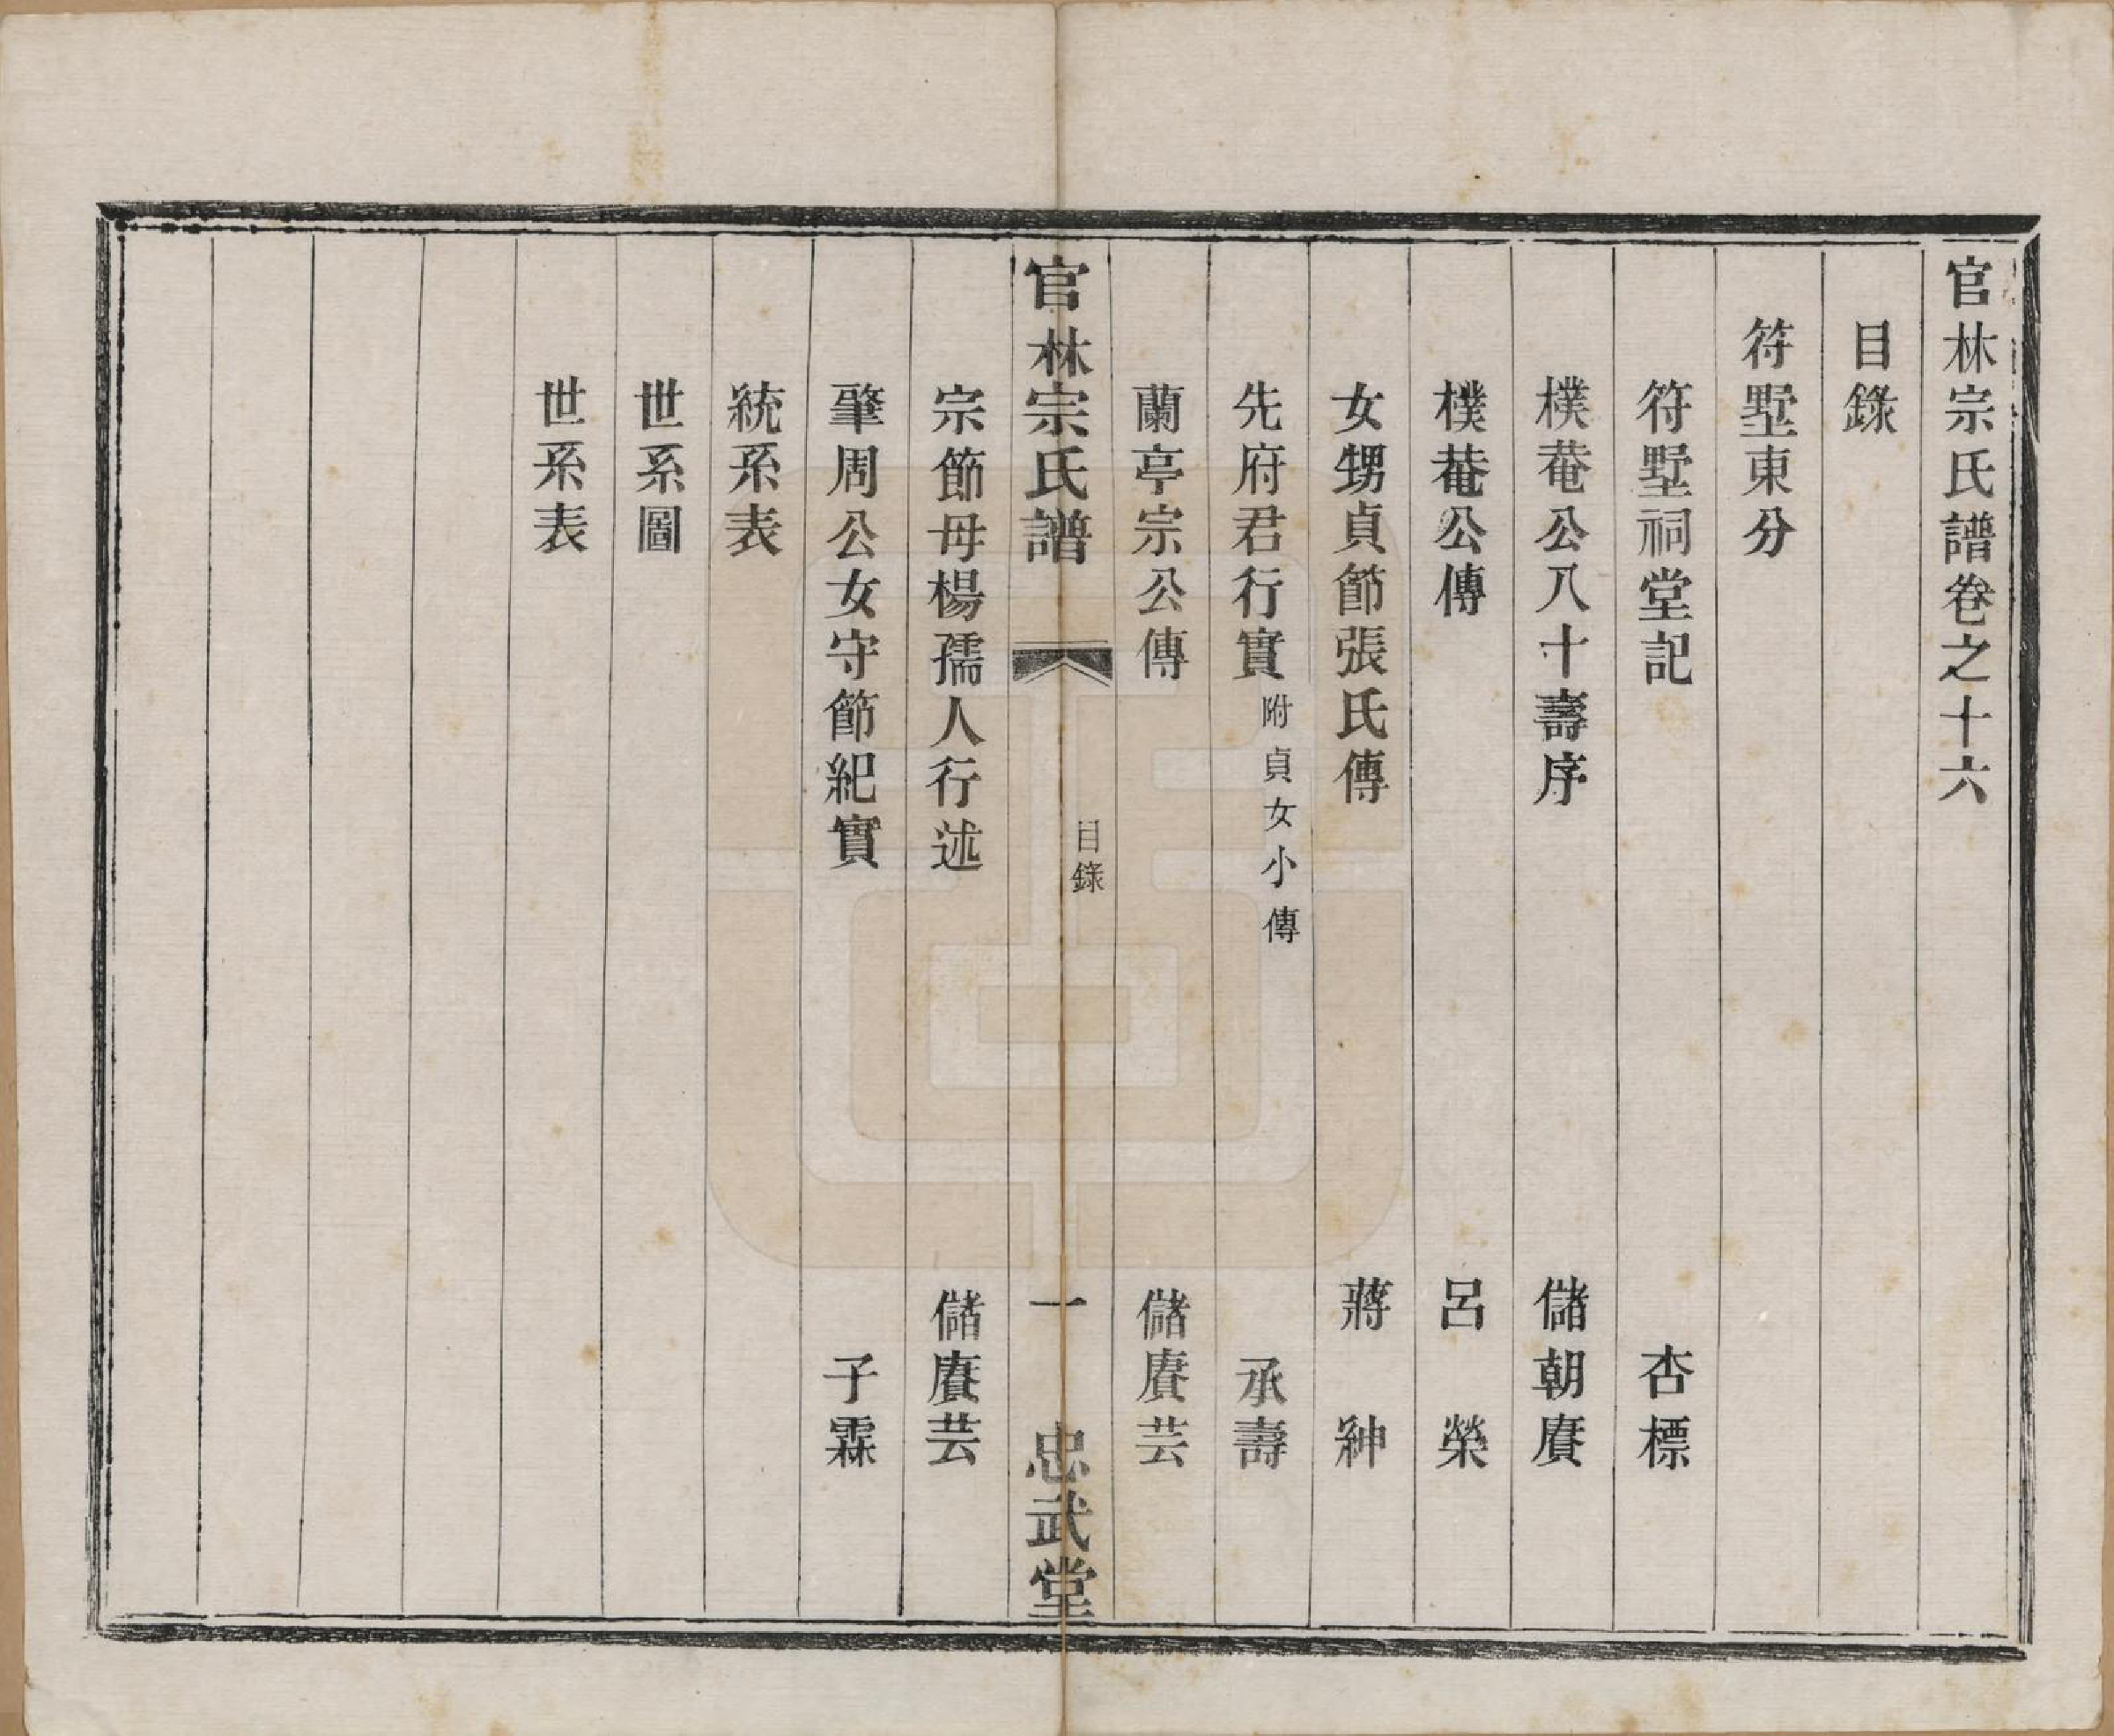 官林宗氏譜卷之十六
目錄
符墅東分
符墅祠堂記 杏標
樸菴公八十壽序 儲朝賡
樸菴公傳 呂榮
女甥貞節張氏傳 蔣紳
先府君行實 附貞女小傳 承壽
蘭亭宗公傳 儲賡芸
官林宗氏譜 目錄 一 忠武堂
宗節母楊孺人行述 儲賡芸
肇周公女守節紀實 子霖
統系表
世系圖
世系表